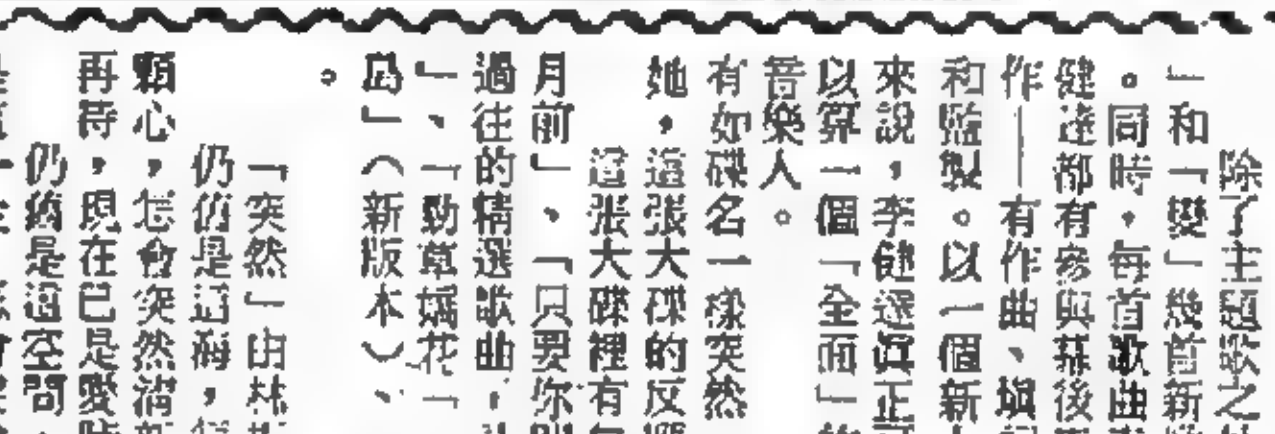 除了主題歌之
」和「變」幾首新
。同時，每首歌曲
健達都有參與幕後
作——有作曲、塡
和監製。以一個新
來說，李健達眞正
以算一個「全面」
音樂人。
有如碟名一樣突然
她，這張大碟的反
這張大碟裡有
月前」、「只要你
過往的精選歌曲，
」、「勁草嬌花「
島」（新版本）、
。
「突然」由林
仍是這
顆心，怎會突然
再待，現在已是愛
仍是這空間，